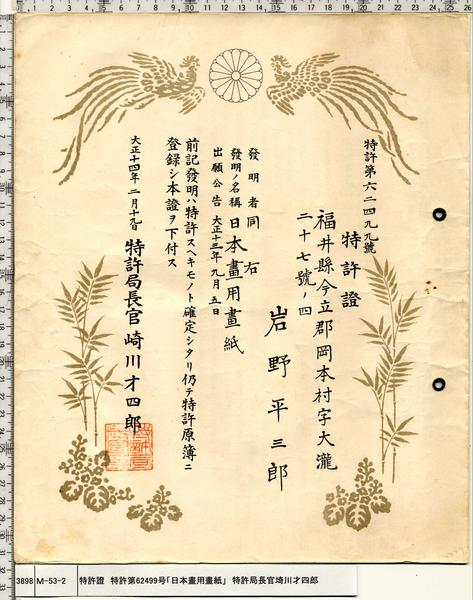 特許第六二四九九號
特許證
福井縣今立郡岡本村字大瀧
二十七號ノ四
岩野平三郎
發明者同右
發明ノ名稱日本畫用畫紙
出願公告大正十三年九月五日
前記發明ハ特許スヘキモノト確定シタリ仍テ特許原簿ニ
登録シ本證ヲ下付ス
大正十四年二月十九日
特許局長官崎川才四郎
3898 M-53-2 特許證 特許第62499号「日本畫用畫紙」 特許局長官埼川才四郎